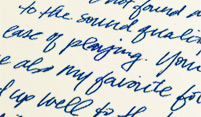 not found a
to the sound quality
ease of playing. Your
also my favorite for
up well to th